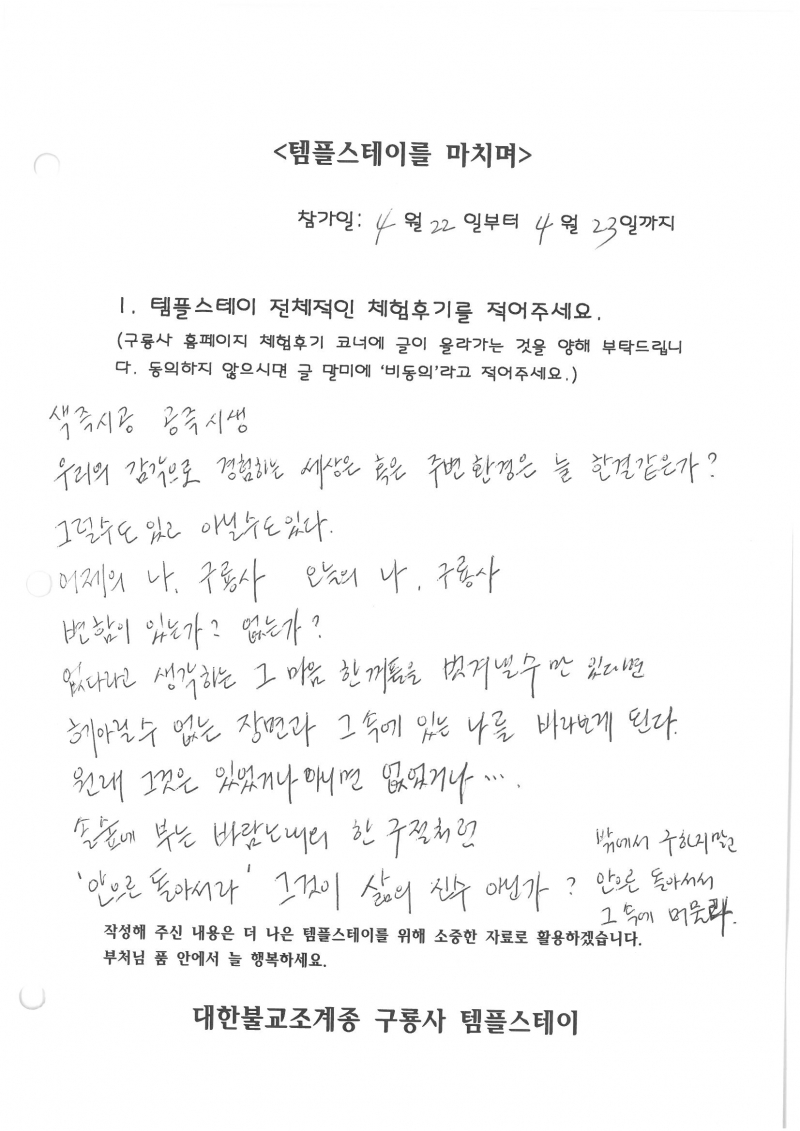 <템플스테이를 마치며>
참가일: 4 월 22 일부터 4 월 23일까지
1. 템플스테이 전체적인 체험후기를 적어주세요.
(구룡사 홈페이지 체험후기 코너에 글이 올라가는 것을 양해 부탁드립니
다. 동의하지 않으시면 글 말미에 '비동의'라고 적어주세요.)
색즉시공 공즉시생
우리의 감각으로 경험하는 세상은 혹은 주변환경은 늘 한결같은가?
그럴수도 있고 아닐수도있다.
어제의 나, 구룡사 오늘의 나, 구룡사
변함이 있는가? 없는가?
없다라고 생각하는 그 마음 한꺼풀을 벗겨낼수만 있다면
헤아릴수 없는 장면과 그 속에 있는 나를 바라보게 된다.
원래 그것은 있었거나 아니면 없었거나 ….
솔숲에 부는 바람노래의 한 구절처럼
'안으로 돌아서라' 그것이 삶의 진수 아닌가?
밖에서 구하지말고
안으로 돌아서서
그 속에 머물라.
작성해 주신 내용은 더 나은 템플스테이를 위해 소중한 자료로 활용하겠습니다.
부처님 품 안에서 늘 행복하세요.
대한불교조계종 구룡사 템플스테이